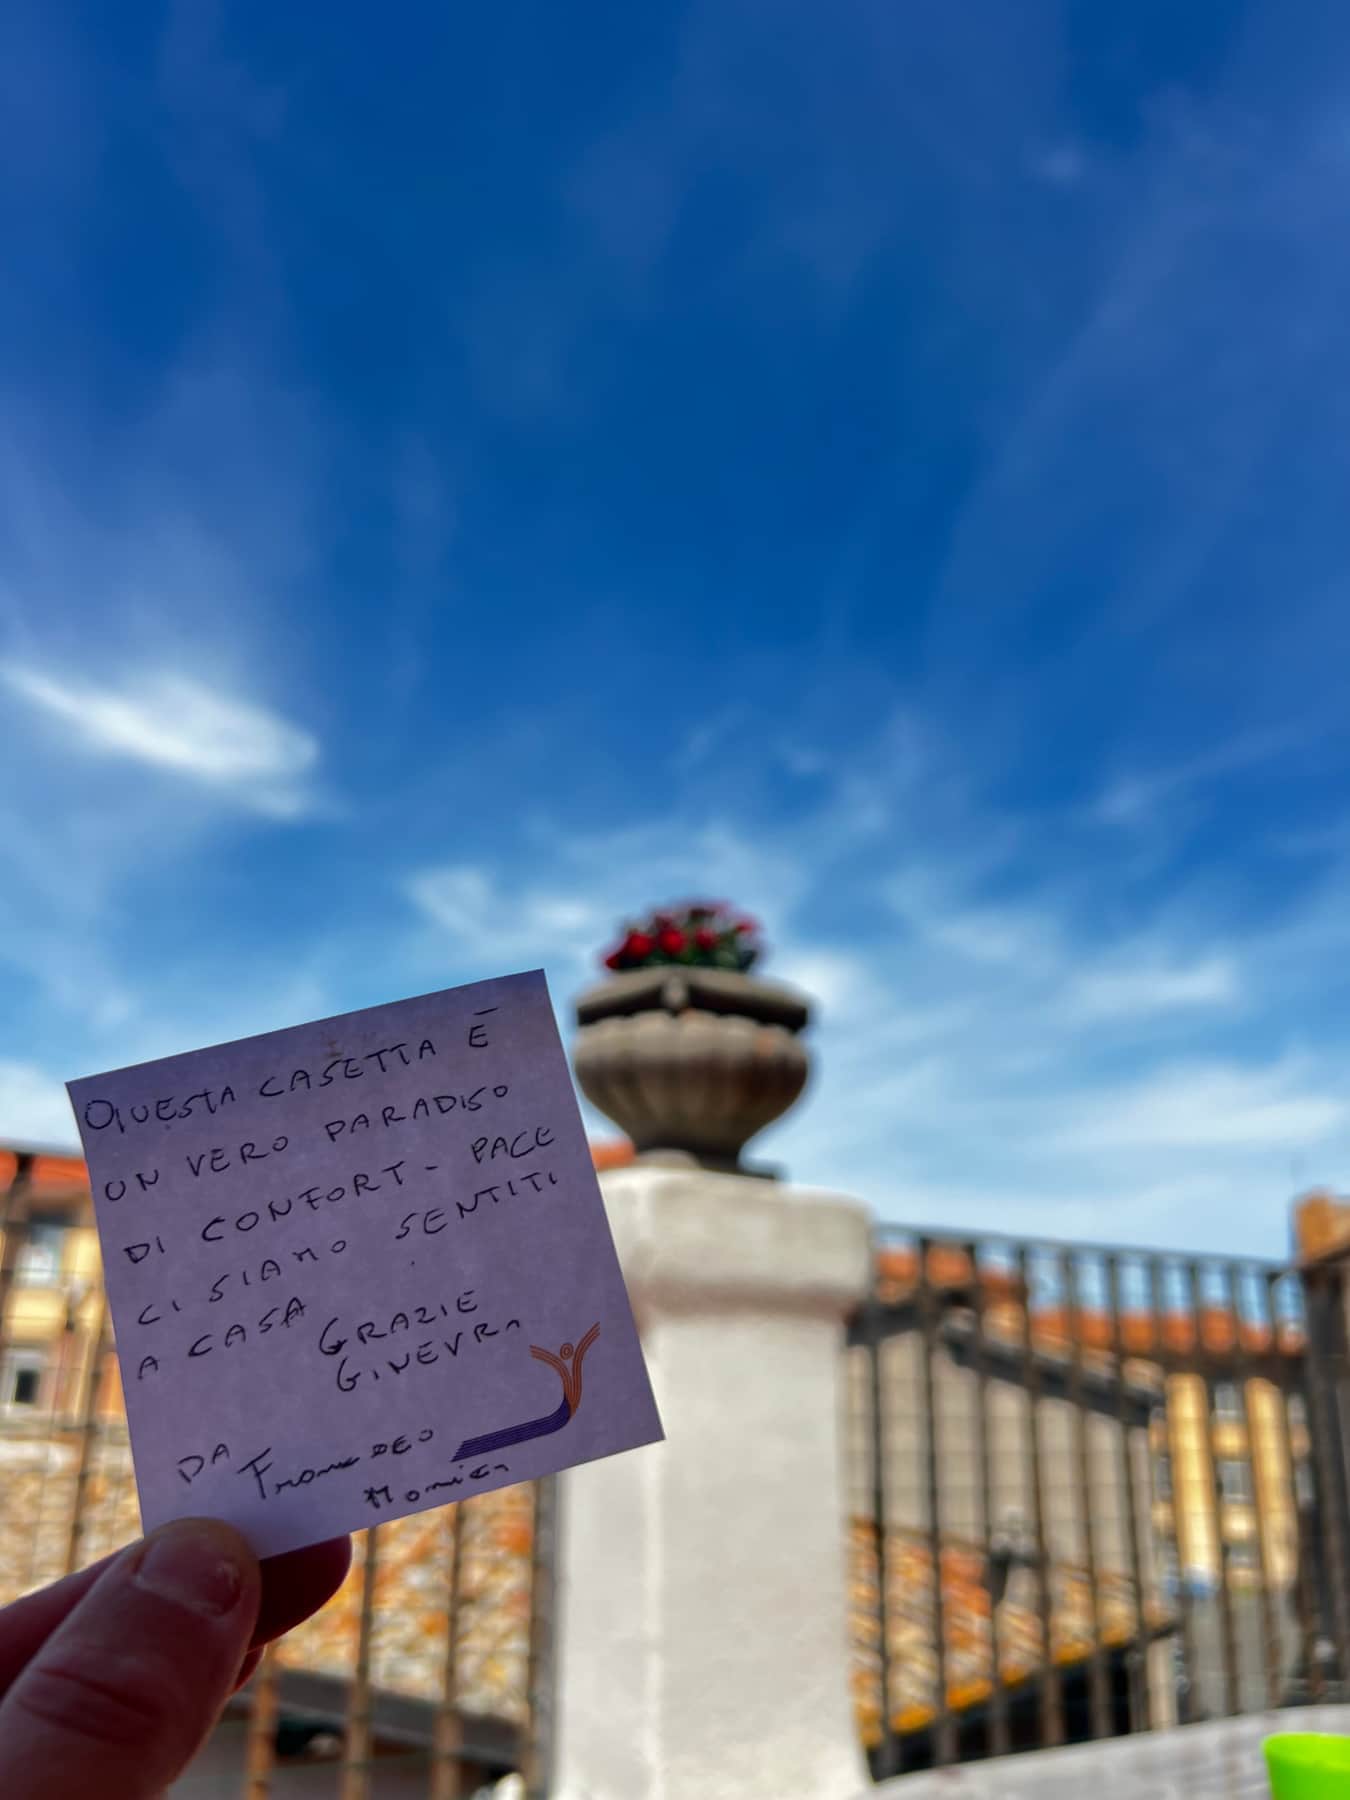 QUESTA CASETTA È
UN VERO PARADISO
DI CONFORT - PACE
CI SIAMO SENTITI
A CASA
GRAZIE
GINEVRA
DA
Monica